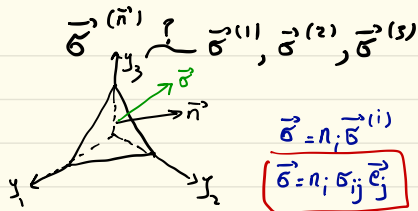 σ⃗^(n⃗) ? σ⃗^(1), σ⃗^(2), σ⃗^(3)
y₃
σ⃗
n⃗
y₁ y₂
σ⃗ = nᵢ σ⃗^(i)
σ⃗ = nᵢ σᵢⱼ e⃗ⱼ